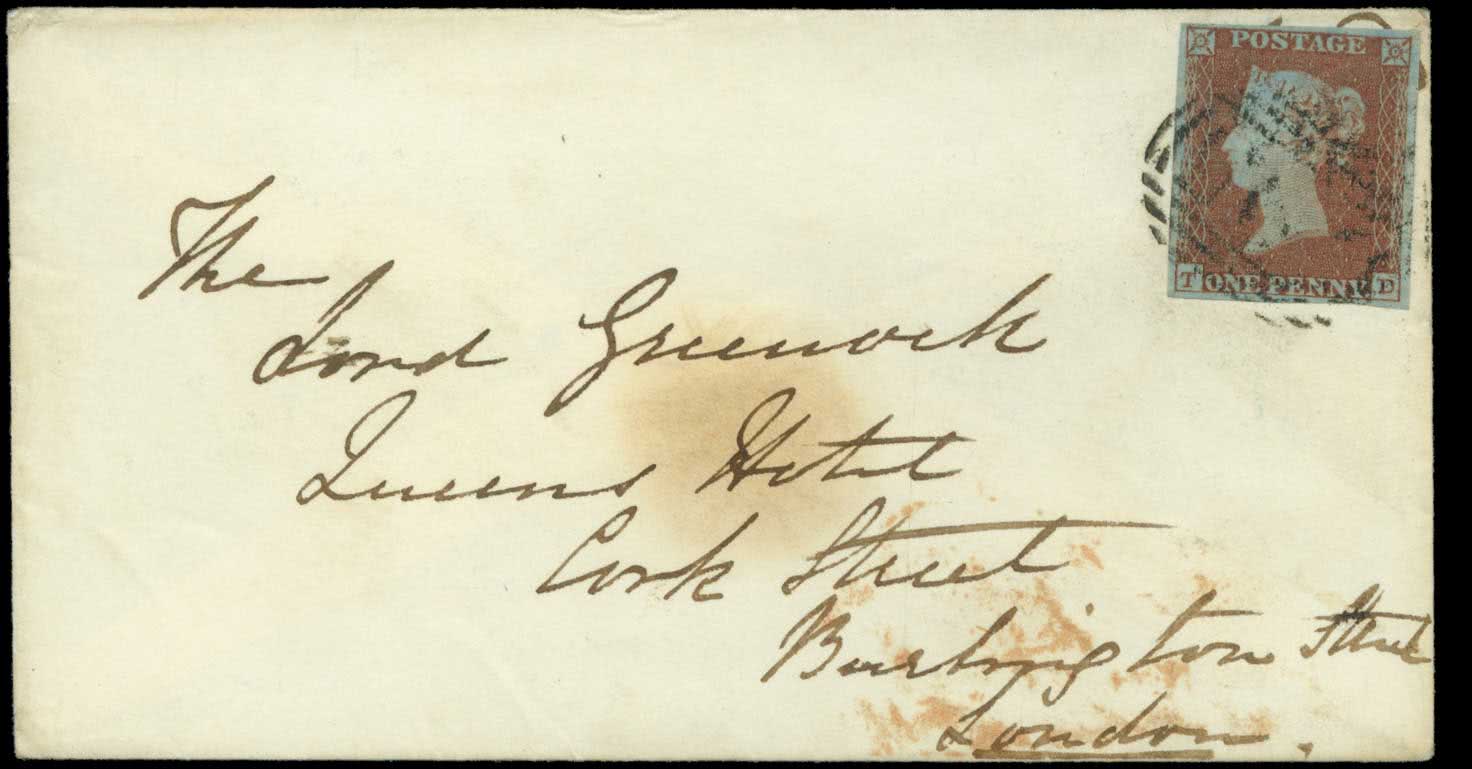 POSTAGE
T ONE PENNY. D
The
Lord Greenock
Queens Hotel
Cork Street
Burlington Street
London.